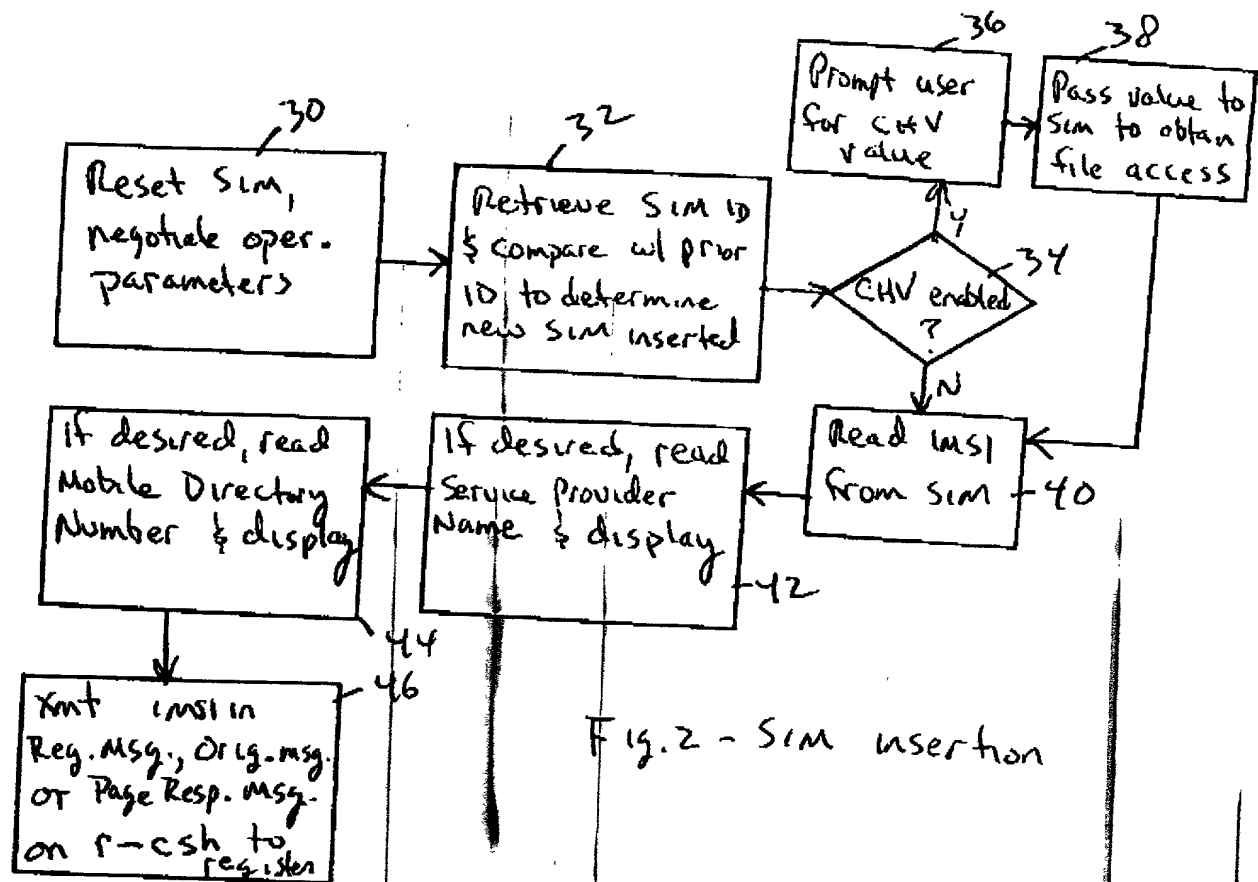 30
Reset SIM,
negotiate oper.
parameters
32
Retrieve SIM ID
& compare w/ prior
ID to determine
new SIM inserted
34
CHV enabled
?
Y
36
Prompt user
for CHV
value
38
Pass value to
SIM to obtain
file access
N
Read IMSI
from SIM
40
If desired, read
Service Provider
Name & display
42
If desired, read
Mobile Directory
Number & display
44
46
Xmt IMSI in
Reg. Msg., Orig. msg.
or Page Resp. Msg.
on r-csh to
register
Fig. 2 - SIM insertion